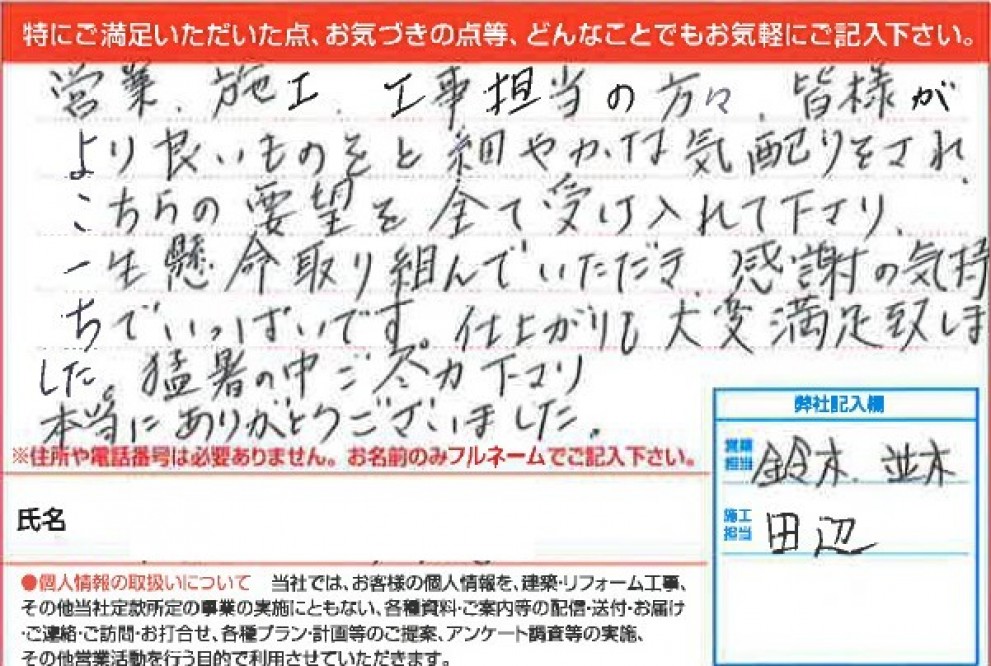 特にご満足いただいた点、お気づきの点等、どんなことでもお気軽にご記入下さい。
営業、施工、工事担当の方々、皆様が
より良いものをと細やかな気配りをされ、
こちらの要望を全て受け入れて下さり、
一生懸命取り組んでいただき、感謝の気持
ちでいっぱいです。仕上がりも大変満足致しま
した。猛暑の中ご尽力下さり
本当にありがとうございました。
※住所や電話番号は必要ありません。お名前のみフルネームでご記入下さい。
氏名
弊社記入欄
営業担当 鈴木、並木
施工担当 田辺
●個人情報の取扱いについて 当社では、お客様の個人情報を、建築・リフォーム工事、
その他当社定款所定の事業の実施にともない、各種資料・ご案内等の配信・送付・お届け
・ご連絡・ご訪問・お打合せ、各種プラン・計画等のご提案、アンケート調査等の実施、
その他営業活動を行う目的で利用させていただきます。